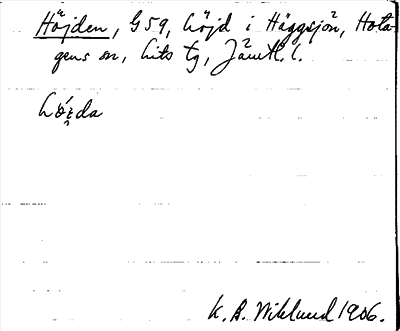 Höjden, G59, höjd i Häggsjön, Hota-
gens sn, Lits tg, Jämtl. l.
K. B. Wiklund 1906.